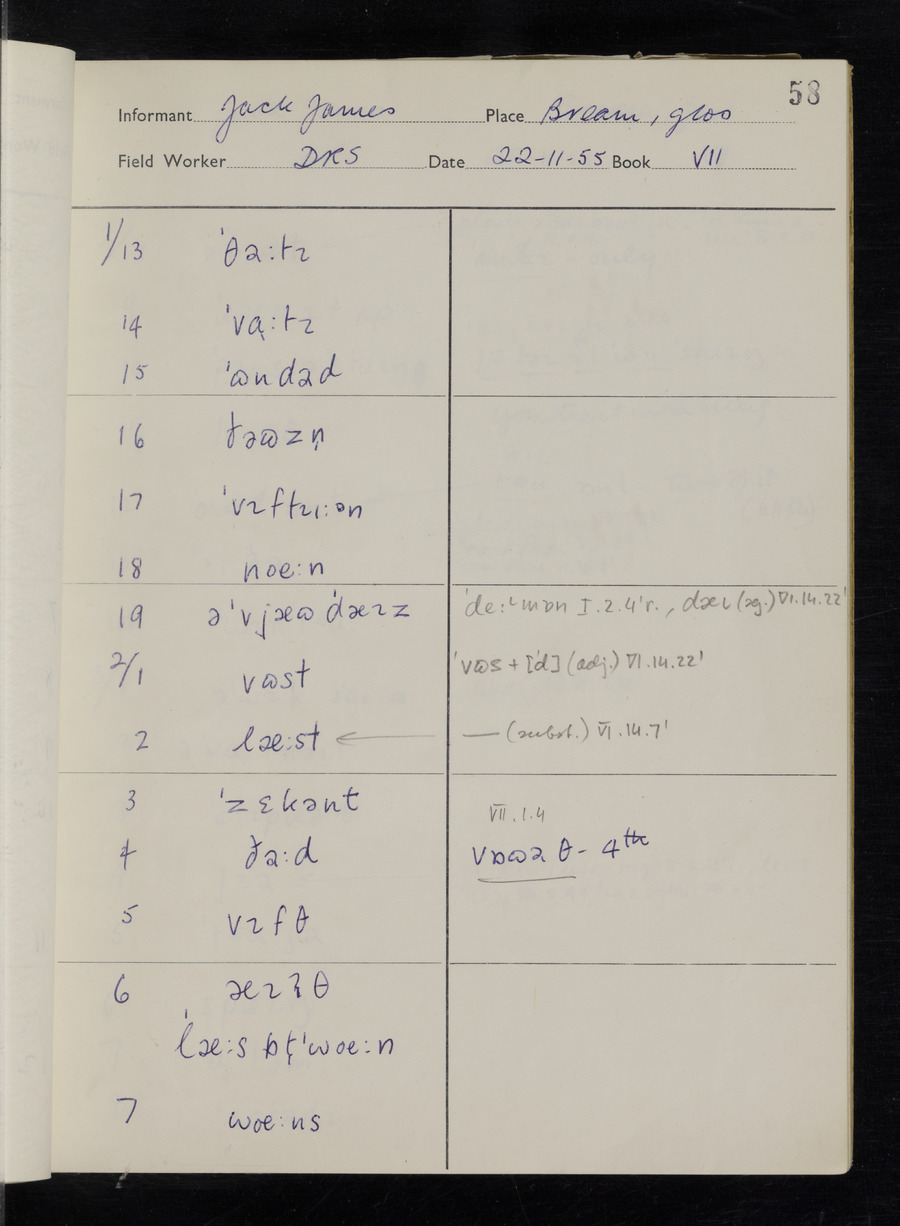 58
Informant Jack James Place Bream, Glos
Field Worker DRS Date 22-11-55 Book VII
1/13 ˈθəːtɪ
14 ˈvɑ̣ːtɪ
15 ˈɷndəd
16 ðəɷzn̩
17 ˈvɪftɪıːən
18 noeːn
19 əˈvjæɷ ˈdæɪz ˈdeːᶫmən I.2.4'r., dæɩ (sg.) VI.14.22'
2/1 vɷst ˈvɷs + [ˈd] (adj.) VI.14.22'
2 læːst ← — (subst.) VI.14.7'
3 ˈzɛkənt
VII.1.4
4 ðəːd vɒɷə θ - 4th
5 vɪfθ
6 æɪtθ
ˈlæːs bʈˈwoeːn
7 woeːns